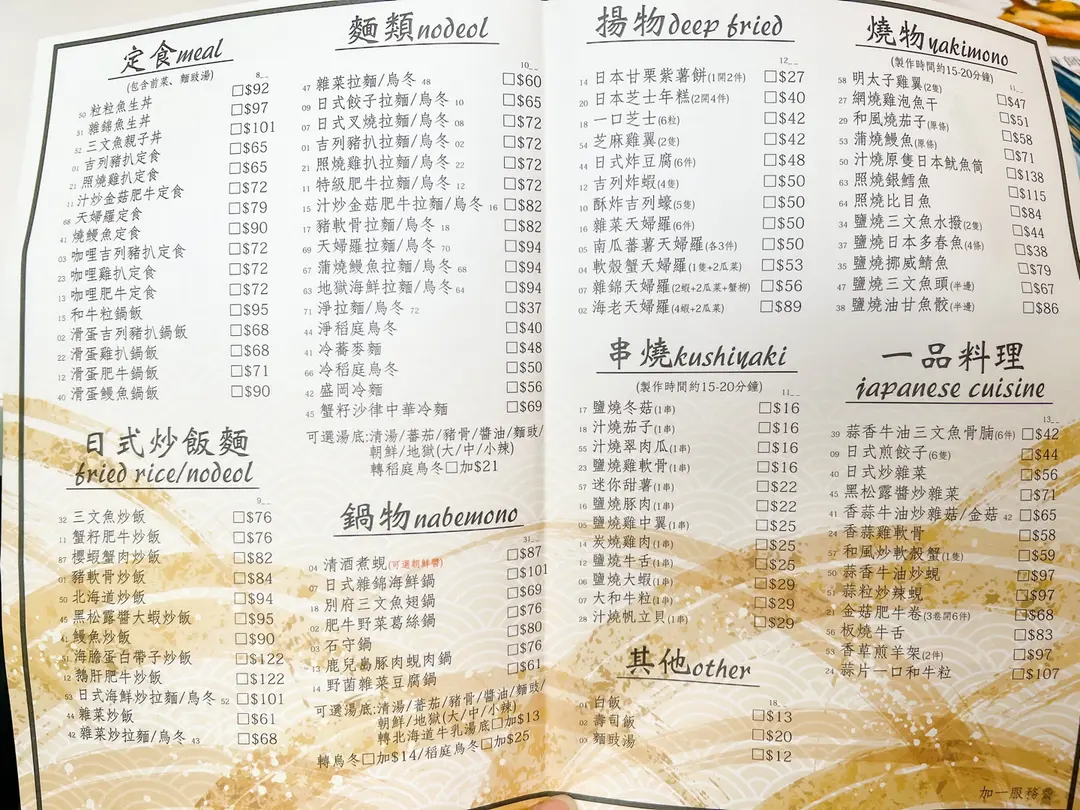 定食 meal
(包含前菜、麵豉湯) 8__
50 粒粒魚生丼 □$92
51 雜錦魚生丼 □$97
52 三文魚親子丼 □$101
01 吉列豬扒定食 □$65
21 照燒雞扒定食 □$65
11 汁炒金菇肥牛定食 □$72
68 天婦羅定食 □$79
41 燒鰻魚定食 □$90
03 咖哩吉列豬扒定食 □$72
23 咖哩雞扒定食 □$72
13 咖哩肥牛定食 □$72
15 和牛粒鍋飯 □$95
02 滑蛋吉列豬扒鍋飯 □$68
22 滑蛋雞扒鍋飯 □$68
12 滑蛋肥牛鍋飯 □$71
40 滑蛋鰻魚鍋飯 □$90
日式炒飯麵
fried rice/nodeol
9__
32 三文魚炒飯 □$76
11 蟹籽肥牛炒飯 □$76
87 櫻蝦蟹肉炒飯 □$82
01 豬軟骨炒飯 □$84
50 北海道炒飯 □$94
45 黑松露醬大蝦炒飯 □$95
41 鰻魚炒飯 □$90
51 海膽蛋白帶子炒飯 □$122
12 鵝肝肥牛炒飯 □$122
53 日式海鮮炒拉麵/烏冬 52 □$101
44 雜菜炒飯 □$61
42 雜菜炒拉麵/烏冬 43 □$68
麵類 nodeol
10__
47 雜菜拉麵/烏冬 48 □$60
09 日式餃子拉麵/烏冬 10 □$65
07 日式叉燒拉麵/烏冬 08 □$72
01 吉列豬扒拉麵/烏冬 02 □$72
21 照燒雞扒拉麵/烏冬 22 □$72
11 特級肥牛拉麵/烏冬 12 □$72
15 汁炒金菇肥牛拉麵/烏冬 16 □$82
17 豬軟骨拉麵/烏冬 18 □$82
69 天婦羅拉麵/烏冬 70 □$94
67 蒲燒鰻魚拉麵/烏冬 68 □$94
63 地獄海鮮拉麵/烏冬 64 □$94
71 淨拉麵/烏冬 72 □$37
44 淨稻庭烏冬 □$40
41 冷蕎麥麵 □$48
66 冷稻庭烏冬 □$50
42 盛岡冷麵 □$56
45 蟹籽沙律中華冷麵 □$69
可選湯底:清湯/蕃茄/豬骨/醬油/麵豉/
朝鮮/地獄(大/中/小辣)
轉稻庭烏冬□加$21
鍋物 nabemono
31__
04 清酒煮蜆(可選朝鮮醬) □$87
07 日式雜錦海鮮鍋 □$101
18 別府三文魚翅鍋 □$69
02 肥牛野菜葛絲鍋 □$76
03 石守鍋 □$80
13 鹿兒島豚肉蜆肉鍋 □$76
14 野菌雜菜豆腐鍋 □$61
可選湯底:清湯/蕃茄/豬骨/醬油/麵豉/
朝鮮/地獄(大/中/小辣)
轉北海道牛乳湯底□加$13
轉烏冬□加$14/稻庭烏冬□加$25
揚物 deep fried
12__
14 日本甘栗紫薯餅(1開2件) □$27
20 日本芝士年糕(2開4件) □$40
18 一口芝士(6粒) □$42
54 芝麻雞翼(2隻) □$42
44 日式炸豆腐(6件) □$48
12 吉列炸蝦(4隻) □$50
10 酥炸吉列蠔(5隻) □$50
16 雜菜天婦羅(6件) □$50
05 南瓜蕃薯天婦羅(各3件) □$50
04 軟殼蟹天婦羅(1隻+2瓜菜) □$53
07 雜錦天婦羅(2蝦+2瓜菜+蟹柳) □$56
02 海老天婦羅(4蝦+2瓜菜) □$89
串燒 kushiyaki
(製作時間約15-20分鐘)
11__
17 鹽燒冬菇(1串) □$16
18 汁燒茄子(1串) □$16
55 汁燒翠肉瓜(1串) □$16
23 鹽燒雞軟骨(1串) □$16
57 迷你甜薯(1串) □$22
16 鹽燒豚肉(1串) □$22
05 鹽燒雞中翼(1串) □$25
14 炭燒雞肉(1串) □$25
12 鹽燒牛舌(1串) □$25
06 鹽燒大蝦(1串) □$29
07 大和牛粒(1串) □$29
28 汁燒帆立貝(1串) □$29
其他 other
18__
01 白飯 □$13
02 壽司飯 □$20
03 麵豉湯 □$12
燒物 yakimono
(製作時間約15-20分鐘)
11__
58 明太子雞翼(2隻) □$47
27 網燒雞泡魚干 □$51
29 和風燒茄子(原條) □$58
53 蒲燒鰻魚(原條) □$71
50 汁燒原隻日本魷魚筒 □$138
63 照燒銀鱈魚 □$115
64 照燒比目魚 □$84
34 鹽燒三文魚水撥(2隻) □$44
37 鹽燒日本多春魚(4條) □$38
35 鹽燒挪威鯖魚 □$79
47 鹽燒三文魚頭(半邊) □$67
38 鹽燒油甘魚骹(半邊) □$86
一品料理
japanese cuisine
13__
39 蒜香牛油三文魚骨腩(6件) □$42
09 日式煎餃子(6隻) □$44
40 日式炒雜菜 □$56
45 黑松露醬炒雜菜 □$71
41 香蒜牛油炒雜菇/金菇 42 □$65
24 香蒜雞軟骨 □$58
57 和風炒軟殼蟹(1隻) □$59
50 蒜香牛油炒蜆 □$97
51 蒜粒炒辣蜆 □$97
21 金菇肥牛卷(3卷開6件) □$68
56 板燒牛舌 □$83
53 香草煎羊架(2件) □$97
24 蒜片一口和牛粒 □$107
加一服務費